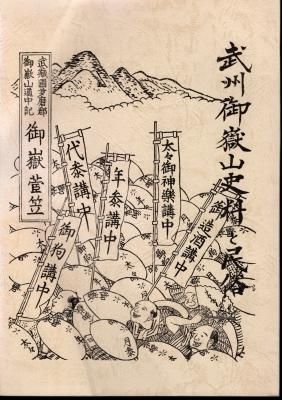 武州御嶽山史料と民俗
太々御神樂講中
御造酒講中
年叅講中
代叅講中
御狗講中
武蔵國多磨郡
御嶽山道中記
御嶽菅笠